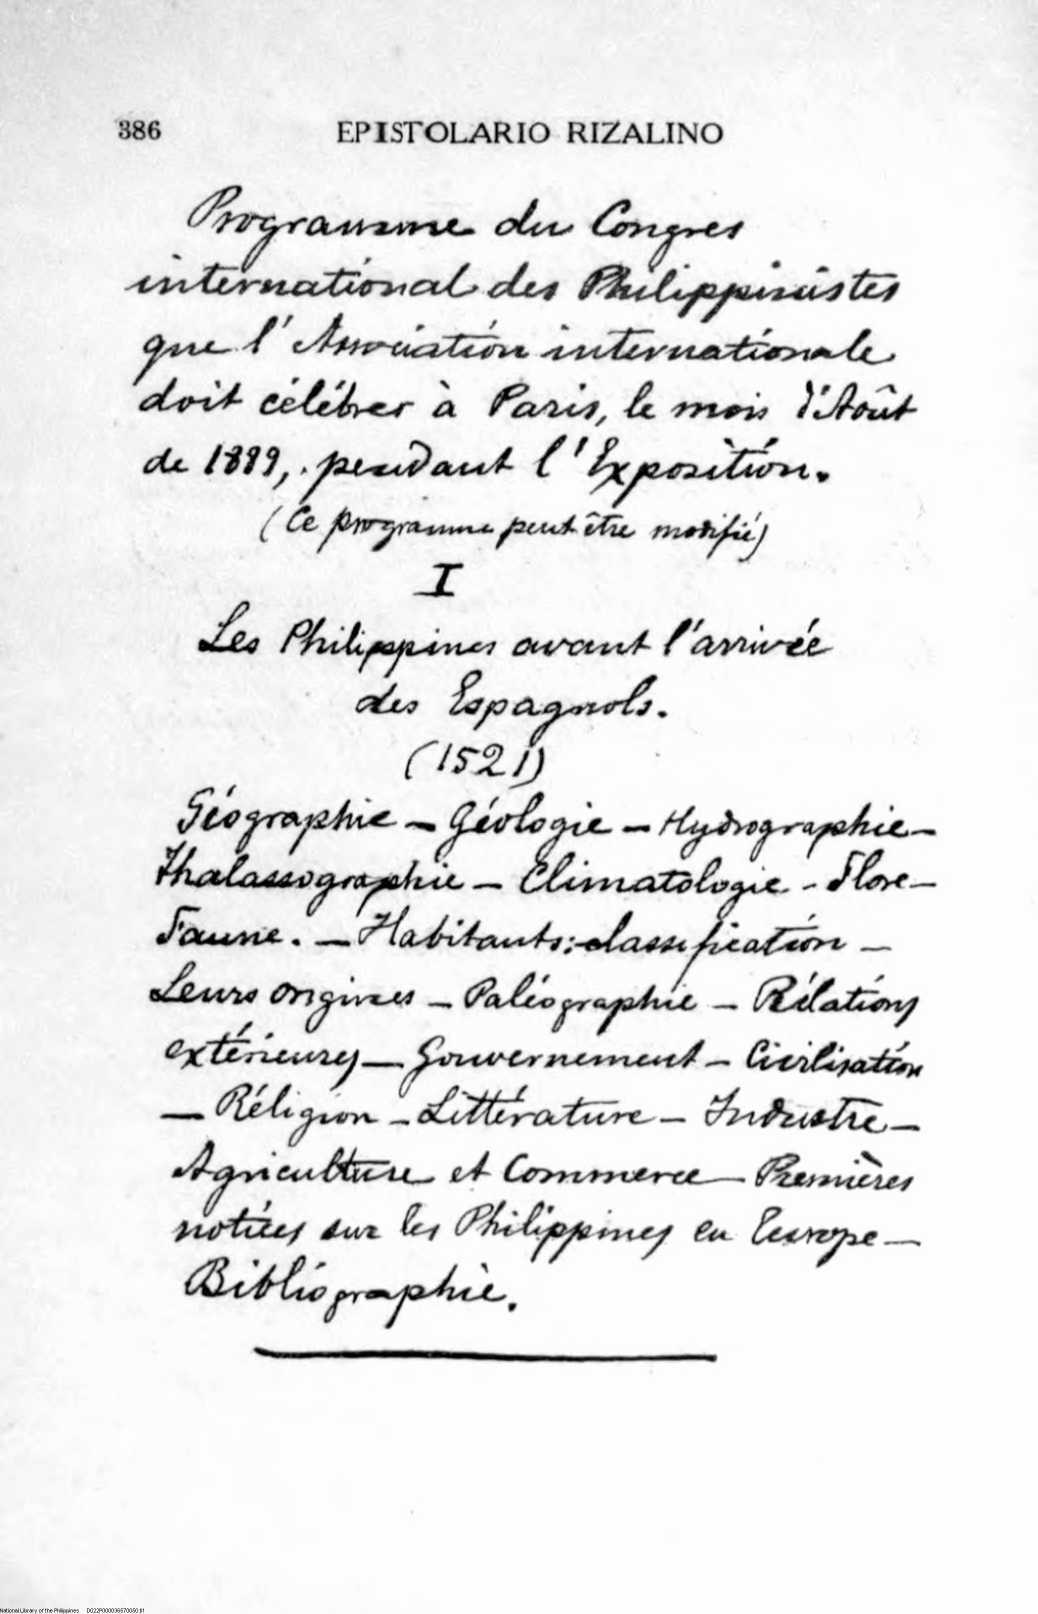 386 EPISTOLARIO RIZALINO
Programme du Congres
international des Philippinistes
que l'Association internationale
doit célébrer à Paris, le mois d'Août
de 1889, pendant l'Exposition.
(Ce programme peut être modifié)
I
Les Philippines avant l'arrivée
des Espagnols.
(1521)
Géographie — Géologie — Hydrographie —
Thalassographie — Climatologie - Flore —
Faune. — Habitants: classification —
Leurs origines — Paléographie — Rélations
extérieures — Gouvernement — Civilisation
— Réligion — Littérature — Industre —
Agriculture et Commerce — Premières
notices sur les Philippines en Europe —
Bibliographie.
National Library of the Philippines